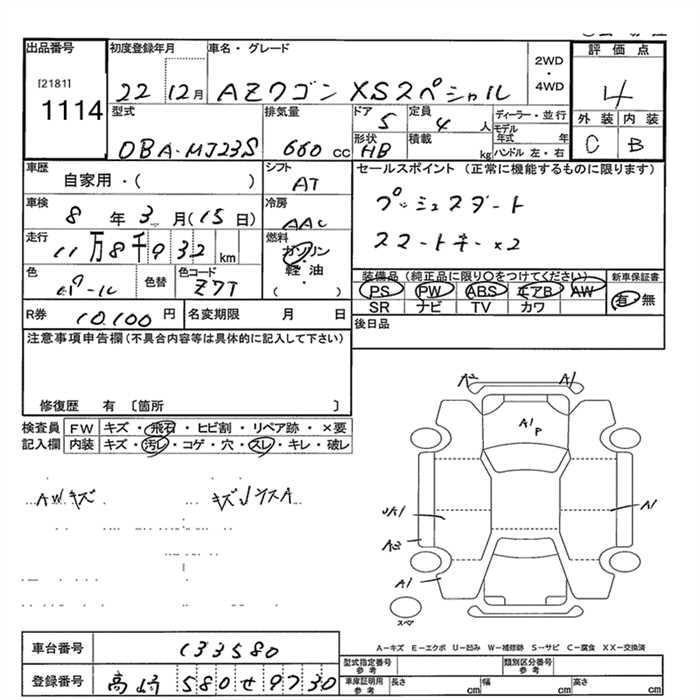 出品番号 初度登録年月 車名・グレード 2WD・4WD 評価点
[2181] 1114 22 12月 AZワゴン XSスペシャル 4
型式 排気量 ドア 5 定員 4 人 ディーラー・並行 外装 内装
DBA-MJ23S 660 cc 形状 HB 積載 kg モデル年式 年 ハンドル 左・右 C B
車歴 シフト セールスポイント (正常に機能するものに限ります)
自家用・( ) AT プッシュスタート
車検 冷房 スマートキー×2
8 年 3 月 (15 日) AAC
走行 燃料 装備品 (純正品に限り○をつけてください) 新車保証書
11万8千932 km ガソリン・軽油・( ) PS PW ABS エアB AW 有・無
色 色替 色コード SR ナビ TV カワ
パール Z7T
R券 10,100 円 名変期限 月 日 後日品
注意事項申告欄(不具合内容等は具体的に記入して下さい)
修復歴 有 〔箇所 〕
検査員 FW キズ・飛石・ヒビ割・リペア跡・×要
記入欄 内装 キズ・汚レ・コゲ・穴・スレ・キレ・破レ
AWキズ
A2 A1
A1 P
A1
A1
A3
A1
スペア
A-キズ E-エクボ U-凹み W-補修跡 S-サビ C-腐食 XX-交換済
車台番号 133580
登録番号 高崎 580 せ 9730
型式指定番号 参考 類別区分番号 参考
車庫証明用 参考 長さ cm 幅 cm 高さ cm